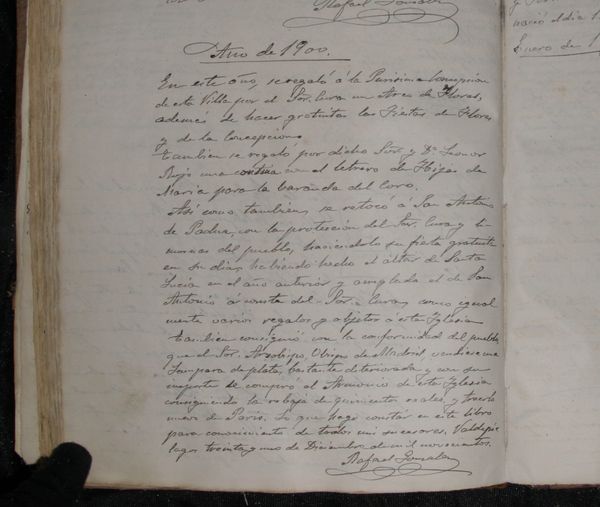 Rafael Gonzalez
Año de 1900.
En este año, se regaló á la Purisima Concepcion
de esta Villa por el Sor. Cura un Arco de Flores,
ademas de hacer gratuitas las Fiestas de Flores
y de la Concepcion.
tambien se regaló por dicho Sor. y Da. Leonor
una cortina con el letrero de Hijas de
Maria para la baranda del Coro.
Asi como tambien, se retocó á San Antonio
de Padua, con la proteccion del Sor. Cura y li-
mosnas del pueblo, haciendole su fiesta gratuita
en su dia, habiendo hecho el altar de Santa
Lucia en el año anterior y arreglado el de San
Antonio á costa del Sor. Cura, como igual
mente varios regalos y objetos á esta Iglesia
tambien consiguió con la conformidad del pueblo,
que el Sor. Arzobispo, Obispo de Madrid, vendiese una
Lampara de plata, bastante deteriorada y con su
importe se compró el Armonio de esta Iglesia
consiguiendo la rebaja de quinientos reales, y traerlo
nuevo de Paris. Lo que hago constar en este libro
para conocimiento de todos mis sucesores. Valdepie
lagos treinta y uno de Diciembre de mil novecientos.
Rafael Gonzalez
Enero de 1